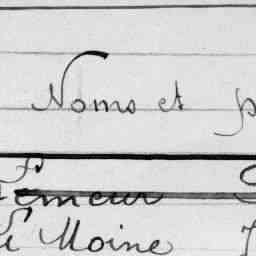 Noms et p
Femeur
Le Moine